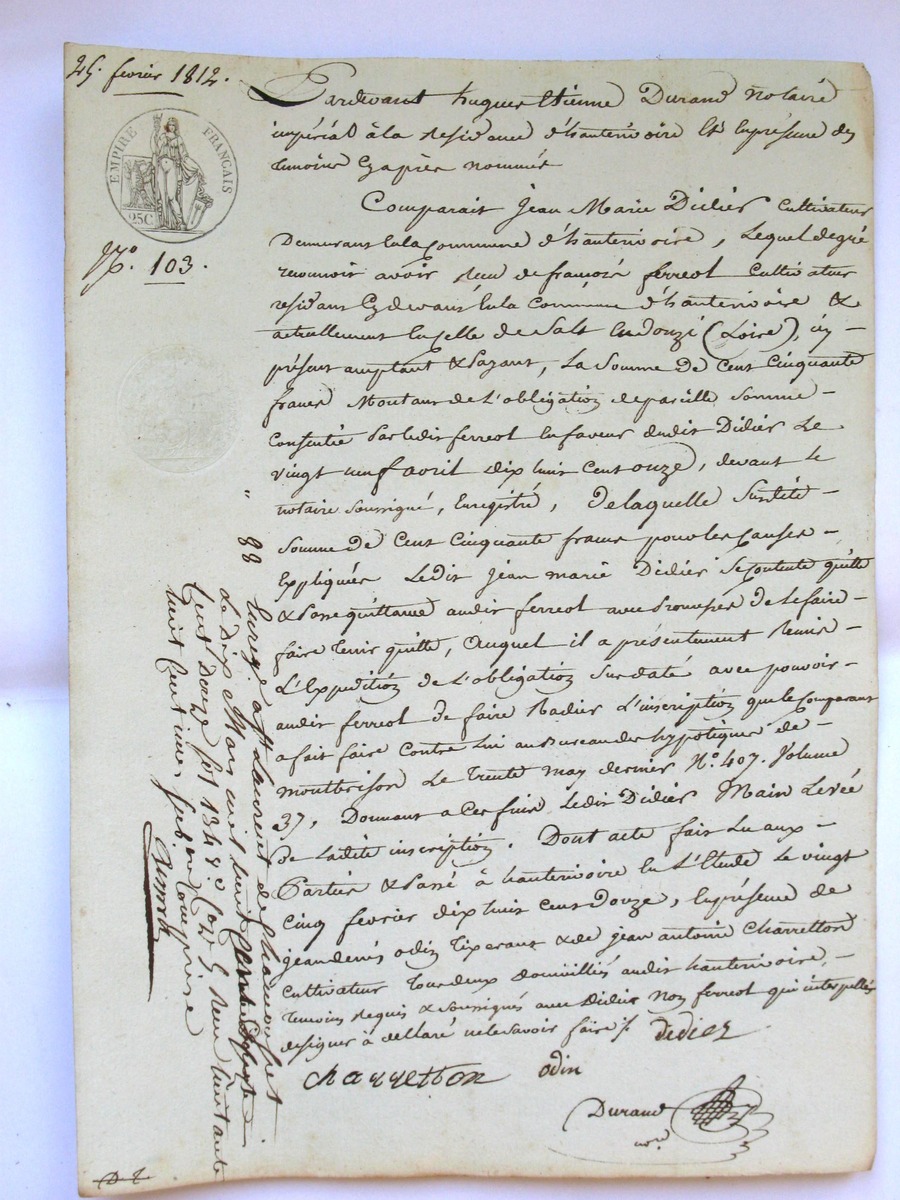 25. fevrier 1812.
EMPIRE FRANÇAIS
25C
N.º 103.
Pardevant hugues Etienne Durand Notaire
impérial à la residence d'hauterivoire Et En présence des
temoins Cy après nommés
Comparait Jean Marie Didier Cultivateur
Demeurant En la Commune d'hauterivoire, Lequel de gré
reconnoit avoir reçu de françois ferreol Cultivateur
residant Cy devant En la Commune d'hauterivoire &
actuellement à Salt En Donzi (Loire), icy
présent acceptant & Payant, La Somme de Cent Cinquante
francs Montant de L'obligation de pareille Somme
Consentie Par ledit ferreol En faveur dudit Didier Le
vingt neuf avril dix huit Cent onze, devant Le
notaire Soussigné, Enregistré, De laquelle Susdite
Somme de Cent Cinquante francs pour les Causes
Expliquées Ledit Jean marie Didier Se Contente quitte
& Passe quittance audit ferreol avec Promesse de Le faire
faire tenir quitte, Auquel il a présentement Remis
L'Expedition de L'obligation Sus datée avec pouvoir
audit ferreol de faire Radier L'inscription que le Comparant
a fait faire Contre Lui au Bureau des hypotéques de
montbrison Le trente may dernier N.º 407. Volume
37, Donnant a Ces fins Ledit Didier Main Levée
De Ladite inscription. Dont acte fait Lu aux
Parties & Passé à hauterivoire En L'Etude Le vingt
Cinq fevrier dix huit Cent Douze, En présence de
jean denis odin tixerant & de jean antoine Charretton
Cultivateur tous deux Domiciliés audit hauterivoire,
temoins Requis & Soussignés avec Didier Non ferreol qui interpellé
de signer à declaré ne le Savoir faire /. didier
charretton odin
Durand
nore.
88
Enreg. à St Laurent de Chamousset
Le dix Mars mil huit
Cent Douze fol 134 Rº. Case 5 reçu
huit Centimes Sub.on Comprise
D. t